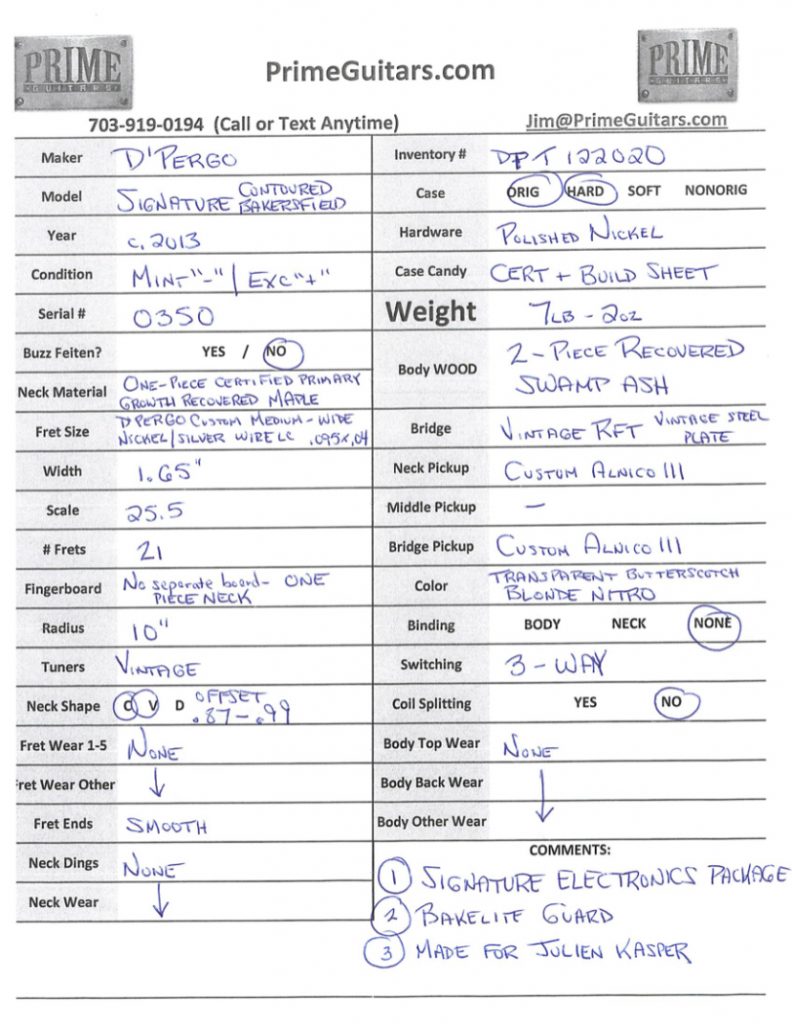 PRIME
GUITARS
PrimeGuitars.com
PRIME
GUITARS
703-919-0194 (Call or Text Anytime)
Jim@PrimeGuitars.com
Maker D'PERGO
Model SIGNATURE CONTOURED BAKERSFIELD
Year c. 2013
Condition MINT"-" / EXC"+"
Serial # 0350
Buzz Feiten? YES / NO
Neck Material ONE-PIECE CERTIFIED PRIMARY
GROWTH RECOVERED MAPLE
Fret Size D'PERGO CUSTOM MEDIUM-WIDE
NICKEL/SILVER WIRE LC .095x.04
Width 1.65"
Scale 25.5
# Frets 21
Fingerboard No separate board- ONE
PIECE NECK
Radius 10"
Tuners VINTAGE
Neck Shape C V D OFFSET
.87-.99
Fret Wear 1-5 NONE
Fret Wear Other ↓
Fret Ends SMOOTH
Neck Dings NONE
Neck Wear ↓
Inventory # DPT 122020
Case ORIG HARD SOFT NONORIG
Hardware POLISHED NICKEL
Case Candy CERT + BUILD SHEET
Weight 7LB - 2OZ
Body WOOD 2-PIECE RECOVERED
SWAMP ASH
Bridge VINTAGE RFT VINTAGE STEEL
PLATE
Neck Pickup CUSTOM ALNICO III
Middle Pickup —
Bridge Pickup CUSTOM ALNICO III
Color TRANSPARENT BUTTERSCOTCH
BLONDE NITRO
Binding BODY NECK NONE
Switching 3-WAY
Coil Splitting YES NO
Body Top Wear NONE
Body Back Wear ↓
Body Other Wear
COMMENTS:
1 SIGNATURE ELECTRONICS PACKAGE
2 BAKELITE GUARD
3 MADE FOR JULIEN KASPER